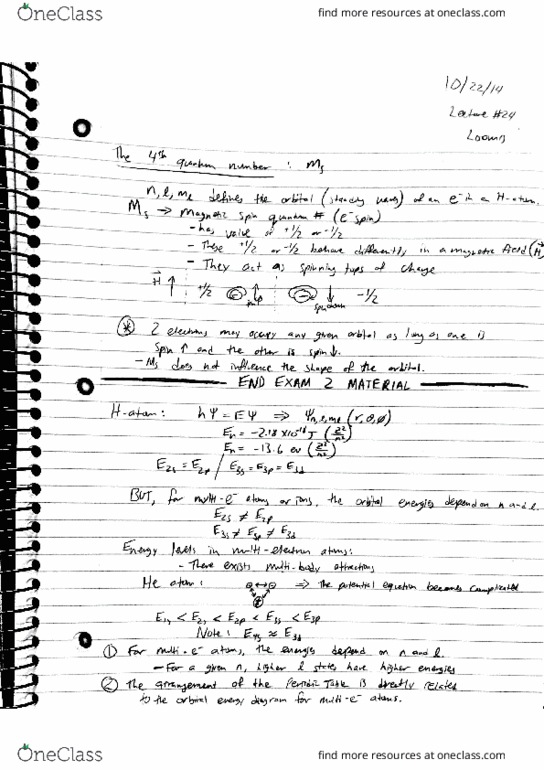 OneClass
find more resources at oneclass.com
10/22/14
Lecture #24
Loomis
The 4th quantum number : Ms
n, l, ml defines the orbital (steady wave) of an e- in a H-atom.
Ms → Magnetic spin quantum # (e- spin)
- has value of +1/2 or -1/2
- These +1/2 or -1/2 behave differently in a magnetic field (H)
- They act as spinning tops of charge
H ↑ +1/2 spin up spin down -1/2
* 2 electrons may occupy any given orbital as long as one is
spin ↑ and the other is spin ↓.
- Ms does not influence the shape of the orbital.
END EXAM 2 MATERIAL
H-atom: ĥΨ = EΨ ⇒ Ψn,l,ml (r, θ, φ)
En = -2.18 x10^-18 J (Z²/n²)
En = -13.6 eV (Z²/n²)
E2s = E2p / E3s = E3p = E3d
BUT, for multi-e- atoms or ions, the orbital energies depend on n and l.
E2s ≠ E2p
E3s ≠ E3p ≠ E3d
Energy levels in multi-electron atoms:
- There exists multi-body attractions
He atom: ⊖ ↔ ⊖ ⇒ The potential equation becomes complicated
⊕
E1s < E2s < E2p < E3s < E3p
Note: E4s ≈ E3d
① For multi-e- atoms, the energies depend on n and l.
- For a given n, higher l states have higher energies
② The arrangement of the Periodic Table is directly related
to the orbital energy diagram for multi-e- atoms.
OneClass
find more resources at oneclass.com